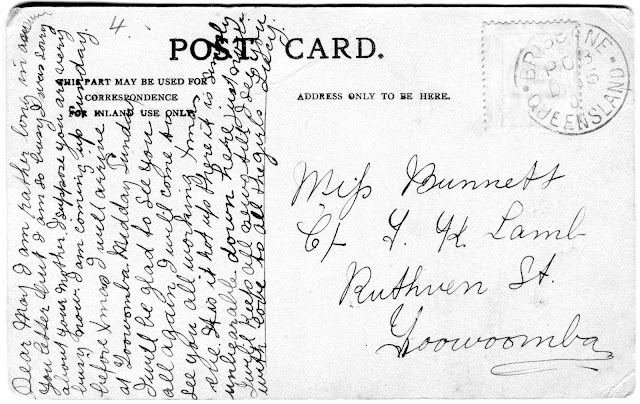 4.
POST CARD.
THIS PART MAY BE USED FOR
CORRESPONDENCE
FOR INLAND USE ONLY
ADDRESS ONLY TO BE HERE.
BRISBANE
QUEENSLAND
Dear May I am rather long in
You letter but I am so busy I was sorry
about your Mother I suppose you are very
busy now I am coming up Sunday
before Xmas I will arrive
at Toowoomba Midday Sunday
I will be glad to see you
all again I will come and
see you all working Xmas
eve. It is it hot up there it is simply
unbearable down here just
I will keep all till I see you
with love to all the girls
Miss Bunnett
C/- T. K. Lamb
Ruthven St.
Toowoomba